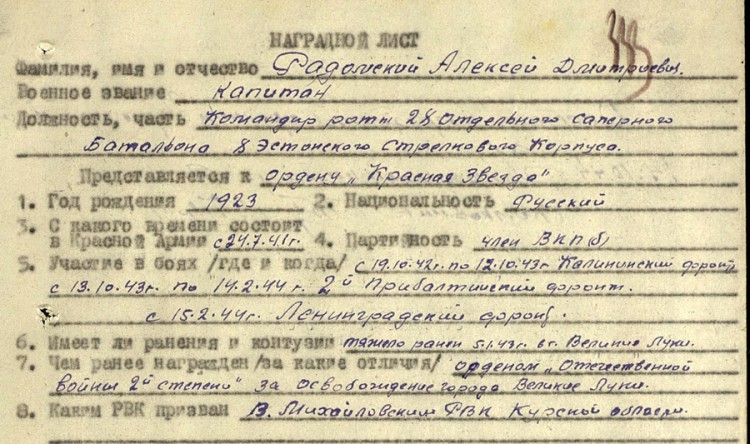 НАГРАДНОЙ ЛИСТ
Фамилия, имя и отчество Радомский Алексей Дмитриевич.
Военное звание Капитан
Должность, часть Командир роты 28 Отдельного саперного
Батальона 8 Эстонского Стрелкового Корпуса.
Представляется к ордену „Красная Звезда"
1. Год рождения 1923 2. Национальность Русский
3. С какого времени состоит
в Красной Армии с 24.7.41г. 4. Партийность член ВКП(б)
5. Участие в боях /где и когда/ с 19.10.42г. по 12.10.43г. Калининский фронт,
с 13.10.43г. по 14.2.44г. 2й Прибалтийский фронт.
с 15.2.44г. Ленинградский фронт.
6. Имеет ли ранения и контузии тяжело ранен 5.1.43г. в г. Великие Луки.
7. Чем ранее награжден /за какие отличия/ орденом „Отечественной
войны 2й степени" за освобождение города Великие Луки.
8. Каким РВК призван В. Михайловским РВК Курской области.